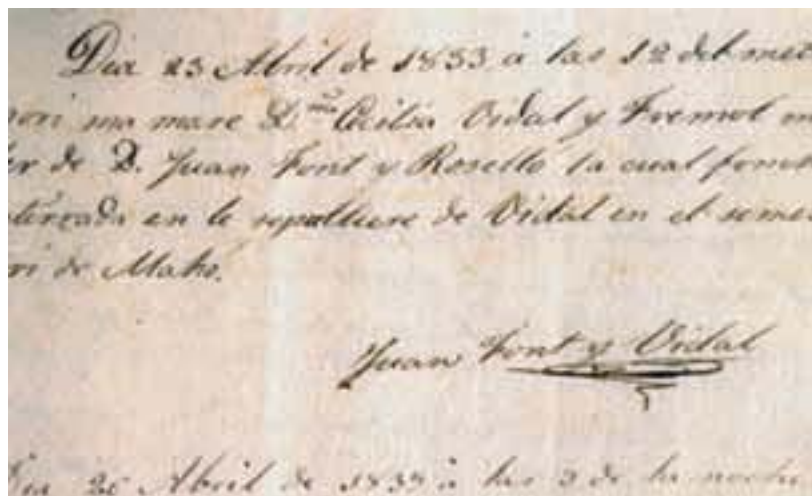 Dia 23 Abril de 1853 à las 12 del mec
mori ma mare D.ña Cecilia Vidal y Fremol m
er de D. Juan Font y Rosello la cual fone
terrada en le sepulture de Vidal en el seme
ri de Maho.
Juan Font y Vidal
Dia 26 Abril de 1839 à las 3 de la noche